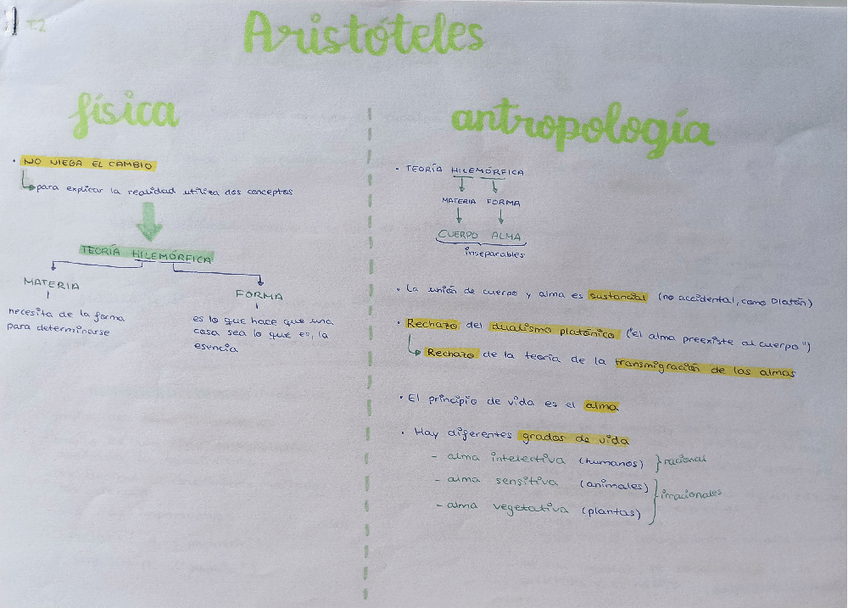 T.2
Aristóteles
física
· NO NIEGA EL CAMBIO
para explicar la realidad utiliza dos conceptos
TEORÍA HILEMÓRFICA
MATERIA
FORMA
necesita de la forma
para determinarse
es lo que hace que una
cosa sea lo que es, la
esencia
antropología
· TEORÍA HILEMÓRFICA
MATERIA FORMA
CUERPO ALMA
inseparables
· La unión de cuerpo y alma es sustancial (no accidental, como Platón)
· Rechazo del dualismo platónico ("el alma preexiste al cuerpo")
Rechazo de la teoría de la transmigración de las almas
· El principio de vida es el alma
· Hay diferentes grados de vida
- alma intelectiva (humanos) } racional
- alma sensitiva (animales)
- alma vegetativa (plantas)
} irracionales